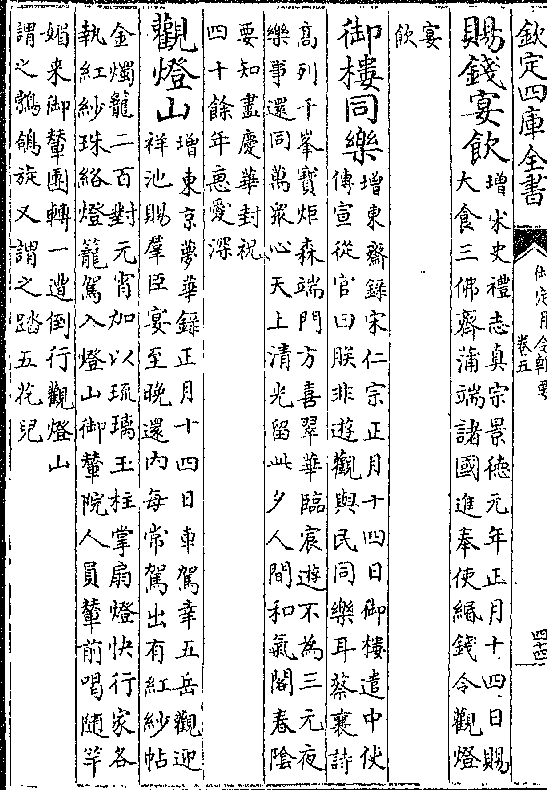 欽定四庫全書
御定月令輯要
卷五
四十四
賜錢宴飲
增宋史禮志真宗景德元年正月十四日賜
大食三佛齊蒲端諸國進奉使緡錢令觀燈
宴
飲
御樓同樂
增東齋錄宋仁宗正月十四日御樓遣中使
傳宣從官曰朕非遊觀與民同樂耳蔡襄詩
髙列千峯寳炬森端門方喜翠華臨宸遊不為三元夜
樂事還同萬衆心天上清光留此夕人間和氣閣春隂
要知盡慶華封祝
四十餘年惠愛深
觀燈山
增東京夢華錄正月十四日車駕幸五岳觀迎
祥池賜羣臣宴至晚還内每常駕出有紅紗帖
金燭籠二百對元宵加以琉璃玉柱掌扇燈快行家各
執紅紗珠絡燈籠駕入燈山御輦院人員輦前唱随竿
媚来御輦團轉一遭倒行觀燈山
謂之鵓鴿旋又謂之踏五花兒